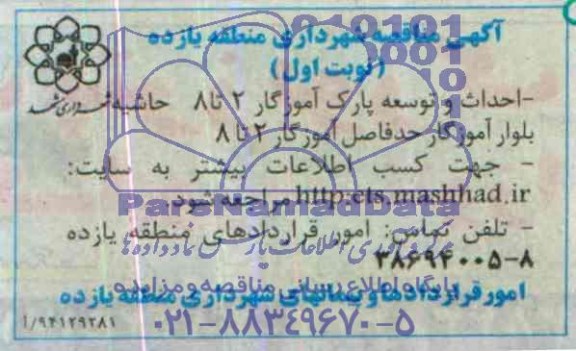 آگهی مناقصه شهرداری منطقه یازده
(نوبت اول)
-احداث و توسعه پارک آموزگار ۲ تا ۸ حاشیه
بلوار آموزگار حدفاصل آموزگار ۲ تا ۸
- جهت کسب اطلاعات بیشتر به سایت:
http:ets.mashhad.ir مراجعه شود
ParsNamadData
- تلفن تماس: امور قراردادهای منطقه یازده
۳۸۶۹۴۰۰۵-۸
پایگاه اطلاع رسانی مناقصه و مزایده
امور قراردادها و پیمانهای شهرداری منطقه یازده
۰۲۱-۸۸۳۴۹۶۷۰-۵
۹۴۱۲۹۲۸۱/آ